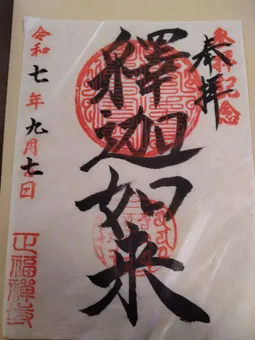 記念
奉拝
釋迦如来
令和七年九月七日
正福禪寺